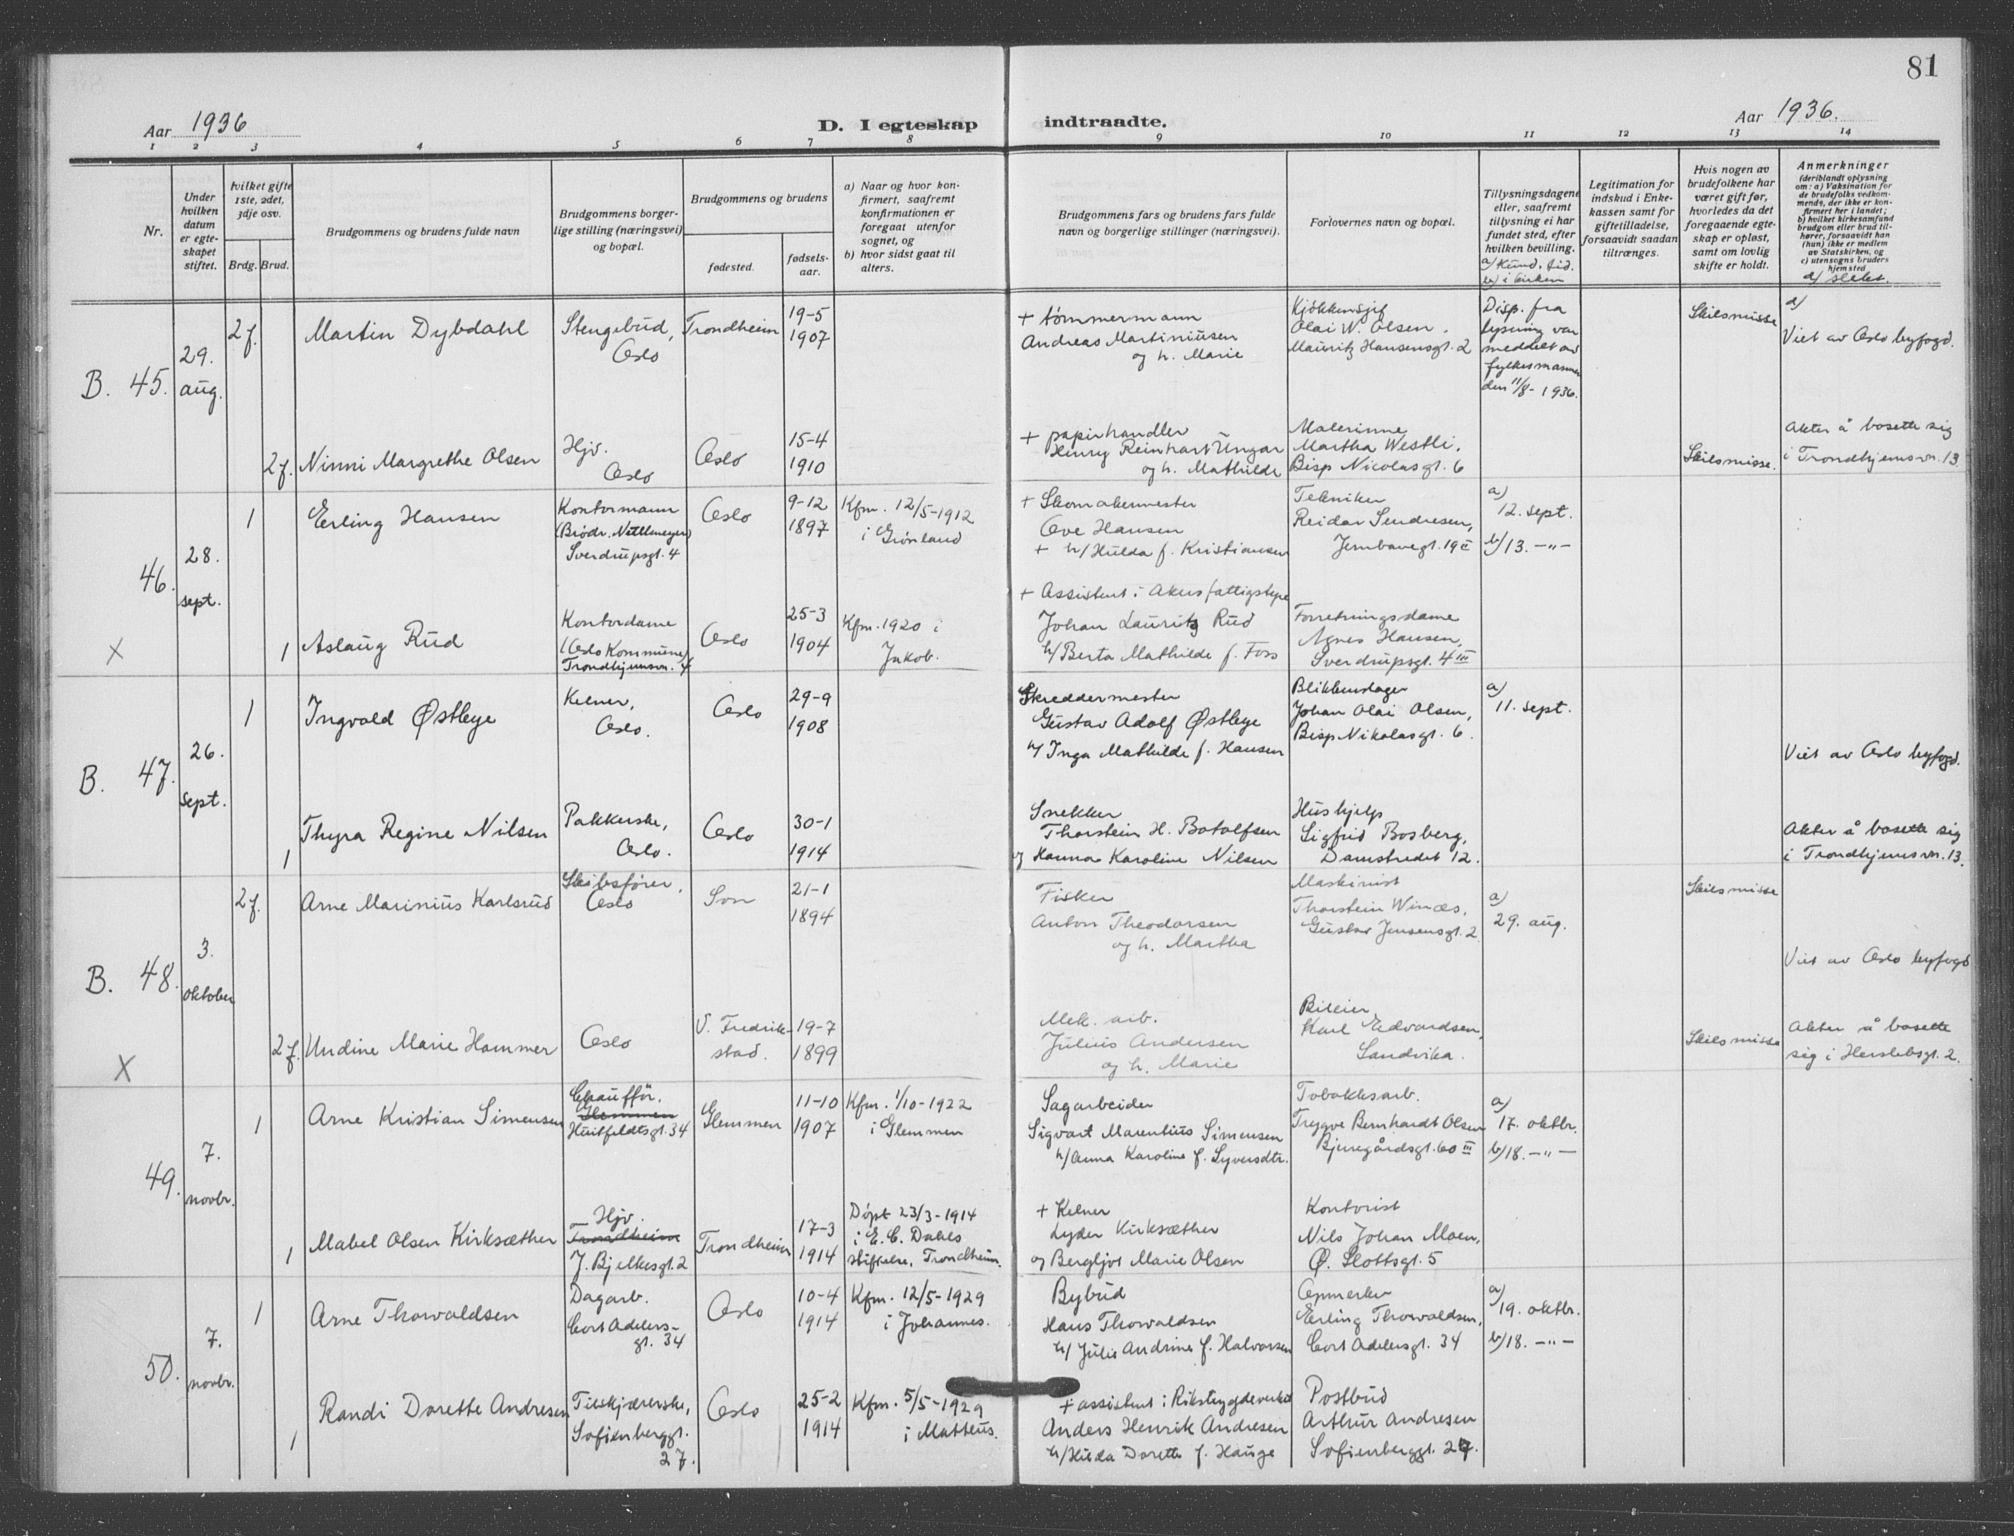 81
Aar 1936
D. I egteskap indtraadte.
Aar 1936.
1 2 3 4 5 6 7 8 9 10 11 12 13 14
Nr.
Under hvilken datum er egteskapet stiftet.
hvilket gifte 1ste, 2det, 3dje osv.
Brdg. Brud.
Brudgommens og brudens fulde navn
Brudgommens borgerlige stilling (næringsvei) og bopæl.
Brudgommens og brudens
fødested.
fødselsaar.
a) Naar og hvor konfirmert, saafremt konfirmationen er foregaat utenfor sognet, og
b) hvor sidst gaat til alters.
Brudgommens fars og brudens fars fulde navn og borgerlige stillinger (næringsvei).
Forlovernes navn og bopæl.
Tillysningsdagene eller, saafremt tillysning ei har fundet sted, efter hvilken bevilling.
a/ Kund. tid.
b/ i kirken
Legitimation for indskud i Enkekassen samt for giftetilladelse, forsaavidt saadan tiltrænges.
Hvis nogen av brudefolkene har været gift før, hvorledes da det foregaaende egteskap er opløst, samt om lovlig skifte er holdt.
Anmerkninger
(deriblandt oplysning om: a) Vaksination for de brudefolks vedkommende, der ikke er konfirmert her i landet; b) hvilket kirkesamfund brudgom eller brud tilhører, forsaavidt han (hun) ikke er medlem av Statskirken, og c) utensogns bruders hjemsted
B. 45.
29. aug.
2 f.
Martin Dybdahl
Stengebud,
Oslo
Trondheim
19-5
1907
+ tømmermann
Andreas Martiniusen
og h. Marie
Kjøkkensjef
Olai W. Olsen.
Mauritz Hansensgt. 2
Disp. fra
lysning var
meddelt av
fylkesmannen
den 11/8-1936.
Skilsmisse
a)
Viet av Oslo byfogd.
2 f.
Ninni Margrethe Olsen
Hjv.
Oslo
Oslo
15-4
1910
+ papirhandler
Henry Reinhart Ungar
og h. Mathilde
Malerinne
Martha Westli,
Bisp Nicolasgt. 6
Skilsmisse.
Akter å bosette sig
i Trondhjemsvn. 13
46.
28. sept.
1
Erling Hansen
Kontormann
Sverdrupsgt. 4
Oslo
9-12
1897
Kfm. 12/5-1912
i Grønland
+ Skomakermester
Ove Hansen
+ h/ Hulda f. Kristiansen
Tekniker
Reidar Sendresen,
Jernbanegt. 19 II
a)
12. sept.
b/ 13. -"-
X
1
Aslaug Rud
Kontordame
(Oslo Kommune)
Trondhjemsvn. 4
Oslo
25-3
1904
Kfm. 1920 i
Jakob.
+ Assistent i Akers fattigstyre
Johan Lauritz Rud
h/ Berta Mathilde f. Foss
Forretningsdame
Agnes Hansen,
Sverdrupsgt. 4 III
B. 47.
26. sept.
1
Ingvald Østbye
Kelner,
Oslo.
Oslo
29-9
1908
Skreddermester
Gustav Adolf Østbye
h/ Inga Mathilde f. Hansen
Blikkenslager
Johan Olai Olsen,
Bisp Nikolasgt. 6.
a)
11. sept.
Viet av Oslo byfogd.
1
Thyra Regine Nilsen
Pakkerske,
Oslo.
Oslo
30-1
1914
Snekker
Thorstein H. Botolfsen
og Hanna Karoline Nilsen
Hushjelp
Sigfrid Bosberg,
Damstredet 12.
Akter å bosette sig
i Trondhjemsvn. 13.
B. 48.
3. oktober
2 f.
Arne Marinius Karlsrud
Skibsfører,
Oslo
Son
21-1
1894
Fisker
Anton Theodorsen
og h. Martha
Maskinist
Thorstein Winæs,
Gustav Jensensgt. 2
a)
29. aug.
Skilsmisse
Viet av Oslo byfogd
X
2 f.
Undine Marie Hammer
Oslo
V. Fredrikstad.
19-7
1899
Mek. arb.
Julius Andersen
og h. Marie
Bileier
Karl Edvardsen,
Sandvika.
Skilsmisse
Akter å bosette
sig i Herslebsgt. 2.
49.
7. novbr.
1
Arne Kristian Simensen
Chauffør.
Glemmen
Huitfeldtsgt. 34
Glemmen
11-10
1907
Kfm. 1/10-1922
i Glemmen
Sagarbeider
Sigvart Marentius Simensen
h/ Anna Karoline f. Syversdtr.
Tobakksarb.
Trygve Bernhardt Olsen
Bjuregårdsgt. 60 III
a)
17. oktbr.
b/ 18. -"-
1
Mabel Olsen Kirksæther
Hjv.
Trondheim
J. Bjelkesgt. 2
Trondheim
17-3
1914
Døpt 23/3-1914
i E. C. Dahls
stiftelse, Trondheim.
+ Kelner
Lyder Kirksæther
og Bergljot Marie Olsen
Kontorist
Nils Johan Moen,
Ø. Slottsgt. 5
50.
7. novbr.
1
Arne Thorvaldsen
Dagarb.
Cort Adelersgt. 34
Oslo
10-4
1914
Kfm. 12/5-1929
i Johannes.
Bybud
Hans Thorvaldsen
h/ Julie Andrine f. Halvorsen
Opmerker
Erling Thorvaldsen,
Cort Adelersgt. 34
a)
19. oktbr.
b/ 18. -"-
1
Randi Dorette Andresen
Tilskjærerske,
Sofienberggt.
27.
Oslo
25-2
1914
Kfm. 5/5-1929
i Matteus.
+ assistent i Rikstrygdeverket
Anders Henrik Andresen
h/ Hilda Dorette f. Hauge
Postbud
Arthur Andresen
Sofienberggt. 27.